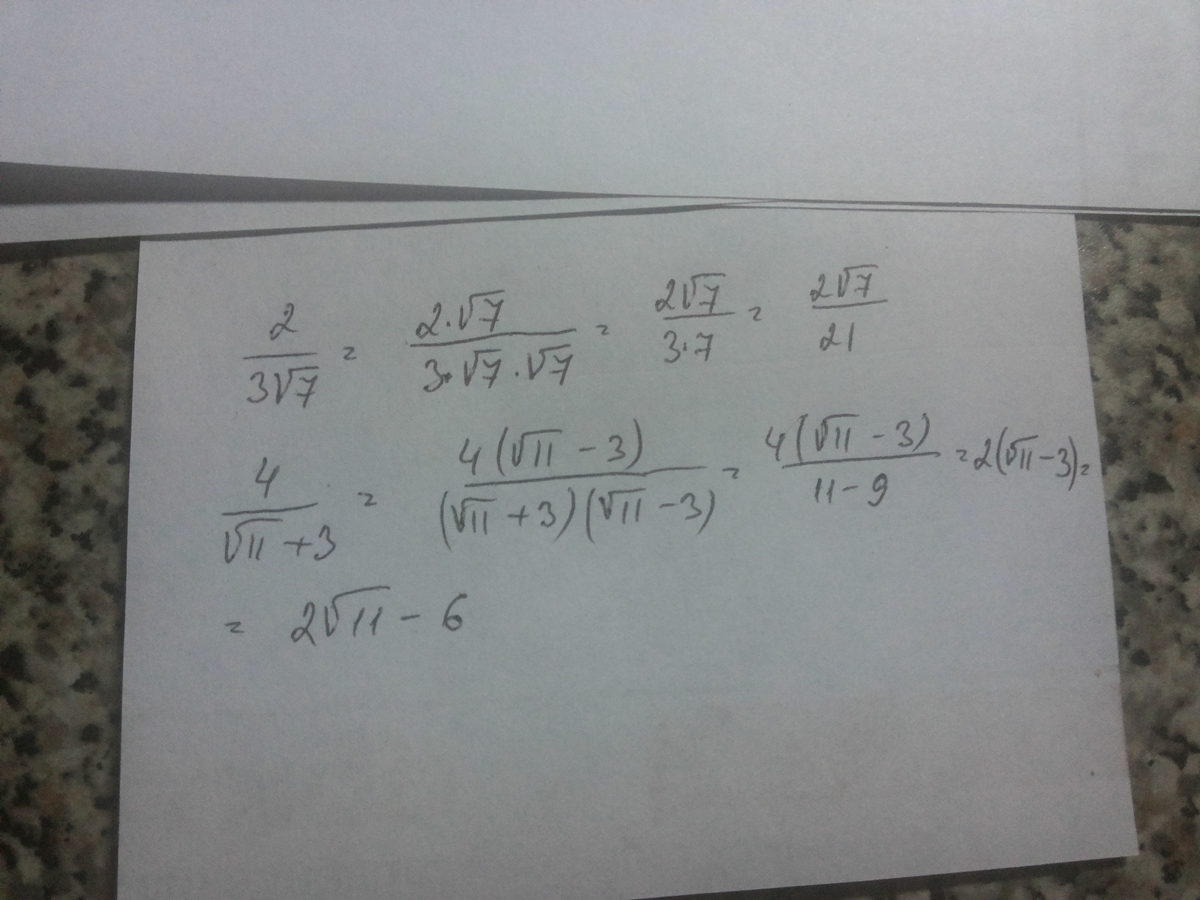 2/(3√7) = (2·√7)/(3·√7·√7) = (2√7)/(3·7) = (2√7)/21
4/(√11+3) = (4(√11-3))/((√11+3)(√11-3)) = (4(√11-3))/(11-9) = 2(√11-3) =
= 2√11 - 6